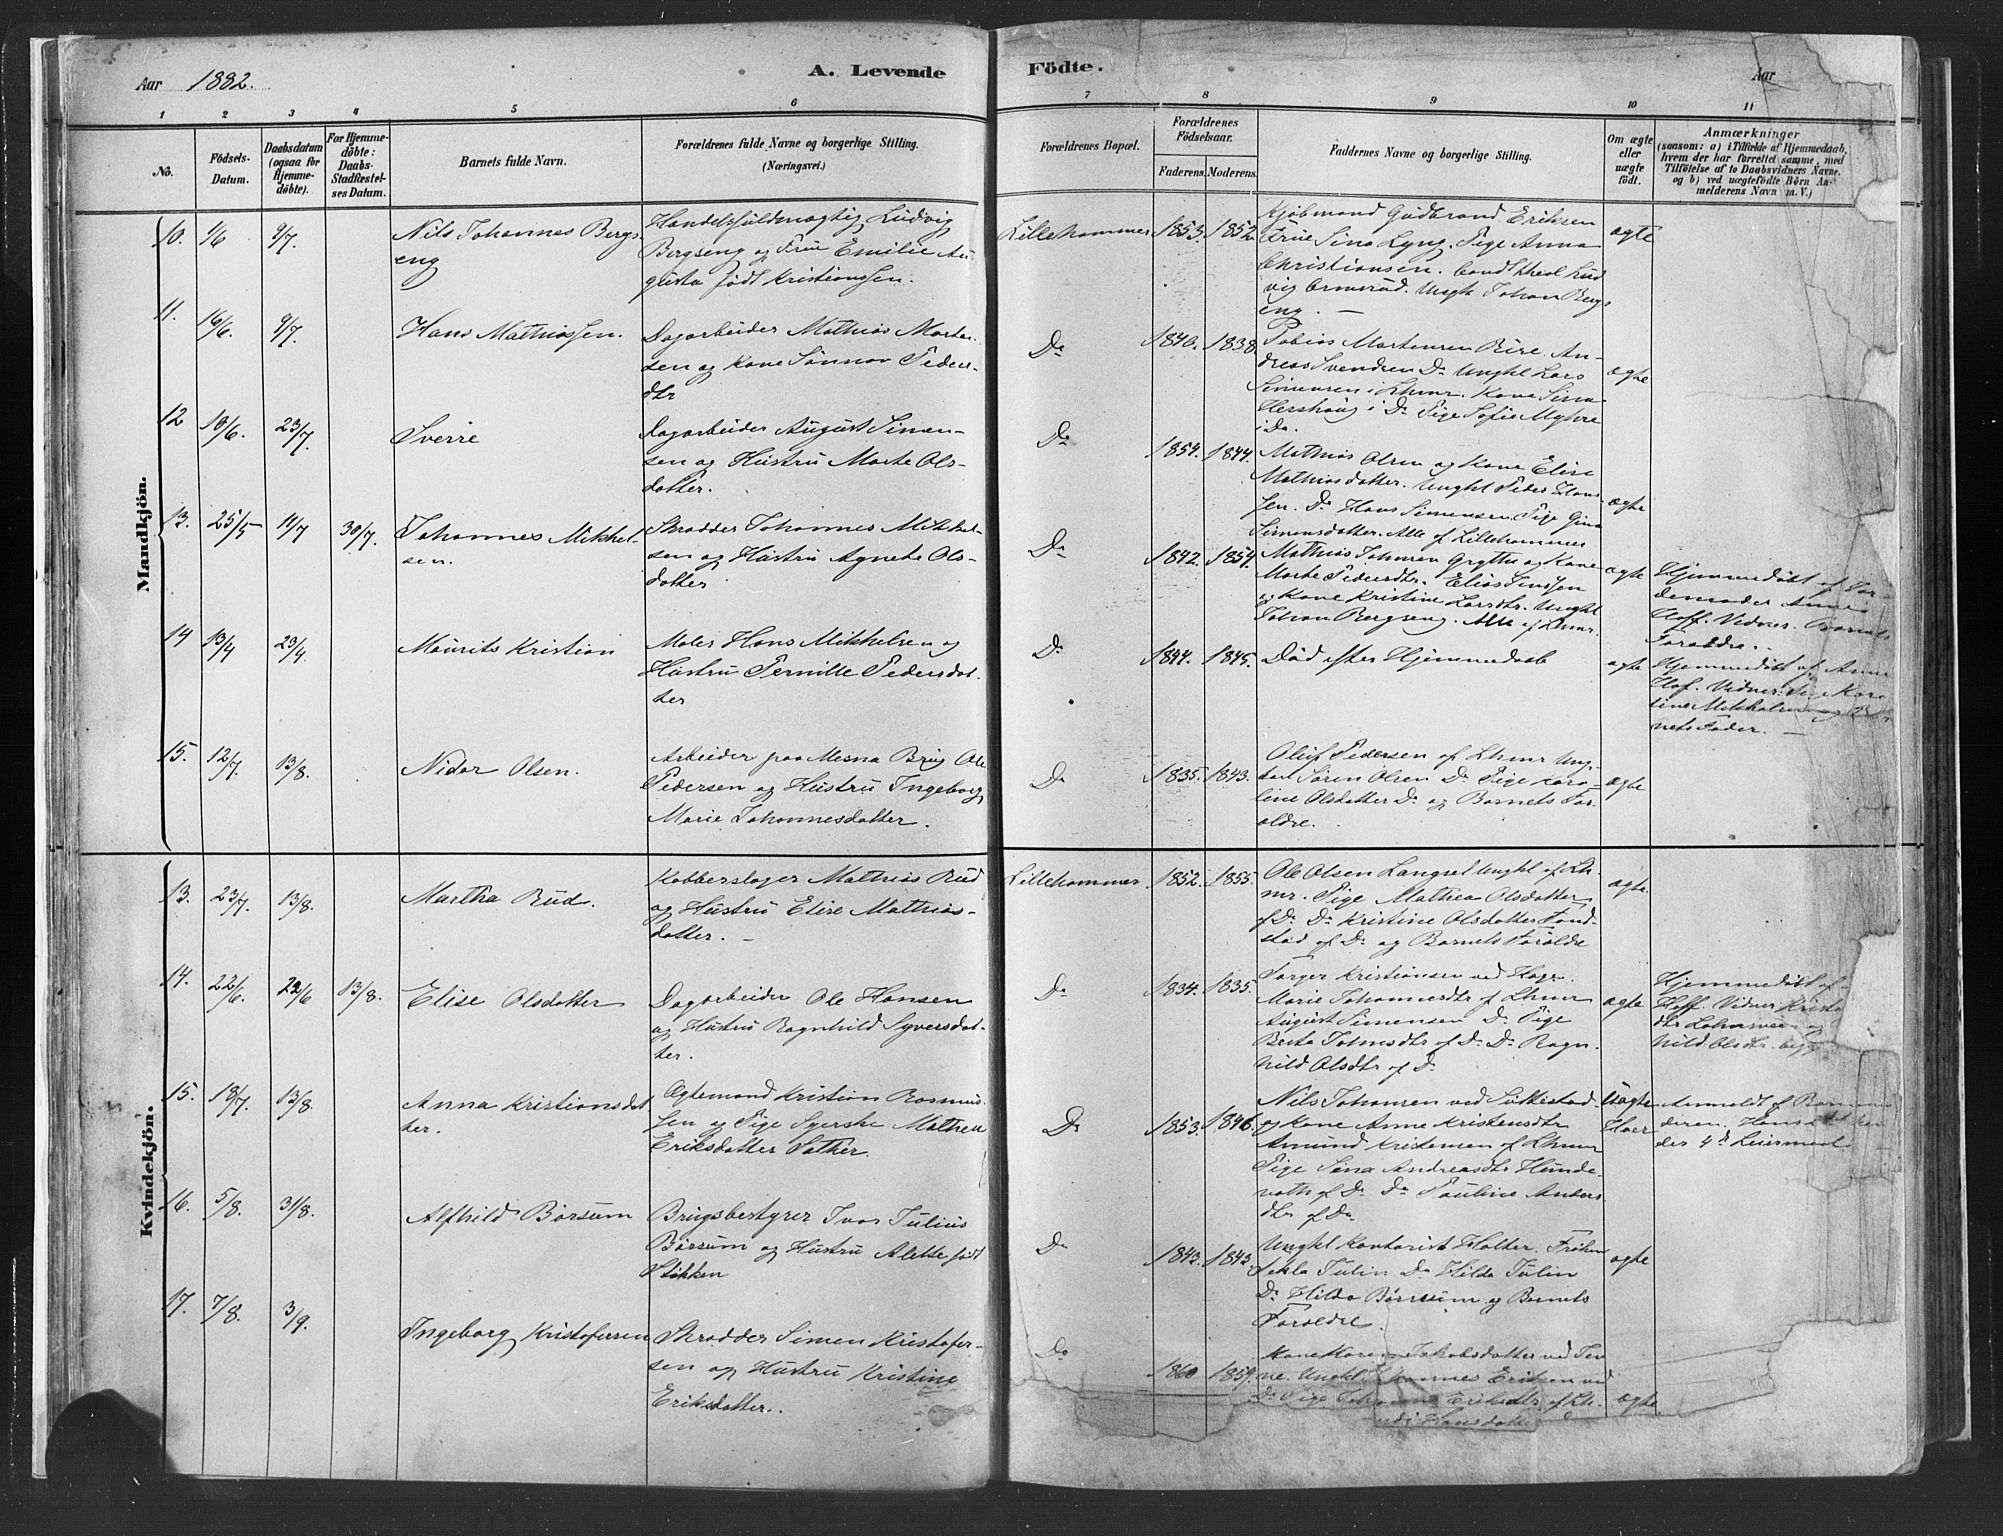 Aar 1882.
A. Levende
Födte.
Aar
1 2 3 4 5 6 7 8 9 10 11
No.
Födsels-
Datum.
Daabsdatum
(ogsaa for
Hjemme-
døbte).
For Hjemme-
døbte:
Daabs-
Stadfæstel-
ses Datum.
Barnets fulde Navn.
Forældrenes fulde Navne og borgerlige Stilling.
(Næringsvei.)
Forældrenes Bopæl.
Forældrenes
Födselsaar.
Faderens. Moderens.
Faddernes Navne og borgerlige Stilling.
Om ægte
eller
uægte
födt.
Anmærkninger
(saasom: a) i Tilfælde af Hjemmedaab,
hvem der har forrettet samme, med
Tilföielse af to Daabsvidners Navne.
og b) ved uægtefödte Börn An-
melderens Navn m. V.)
Mandkjön.
10. 9/7
Nils Johannes Bergs-
eng
Handelsfuldmægtig Ludvig
Bergseng og Frue Emilie Au-
gusta født Kristiansen.
Lillehammer 1853. 1852.
Kjøbmand Gudbrand Eriksen
Frue Sina Lyng. Pige Anna
Christiansen. Cand. theol Lud
vig Ormsrud. Ungk Johan Bergs
eng. —
ægte
11. 16/6 9/7
Hans Mathiassen.
Dagarbeider Mathias Marten-
sen og Kone Sønnov Peders-
dtr
Do 1840. 1838
Tobias Martensen Bire. An-
dreas Svendsen Do Ungkl Lars
Simensen i Lhmr. Kone Sina
Hershaug i Do Pige Sofie Myhre
i Do.
ægte
12 19/6. 23/7.
Sverre
Dagarbeider August Simen-
sen og Hustru Marte Ols-
datter.
Do 1854. 1844.
Mathias Olsen og Kone Elise
Mathiasdatter. Ungkl Peder Han-
sen. Do Hans Simensen Pige Gina
Simensdatter. Alle af Lillehammer
ægte
13. 25/5 11/7 30/7.
Johannes Mikkel-
sen.
Skrædder Johannes Mikkel-
sen og Hustru Agnethe Ols-
datter
Do 1842. 1854.
Mathias Johnsen Grytte og Kone
Marte Pedersdtr. Elias Jenssen
og Kone Kristine Larsdtr. Ungkl
Johan Bergseng. Alle af Lhmr.
ægte
Hjemmedøbt af Jor-
demoder Anne
Hoff. Vidner. Barnets
Forældre.
14 13/4 23/4.
Maurits Kristian
Maler Hans Mikkelsen og
Hustru Pernille Pedersdat-
ter
Do 1844. 1845.
Død efter Hjemmedaab
ægte
Hjemmedøbt af Anne
Hof. Vidner: Pige Karo
line Mikkelsen og Bar-
nets Fader. —
15. 12/7. 13/8.
Nidar Olsen.
Arbeider paa Mesna Brug Ole
Pedersen og Hustru Ingeborg
Marie Johannesdatter.
Do 1835. 1843.
Oluf Pedersen af Lhmr Ung-
karl Søren Olsen Do Pige Karo-
line Olsdatter Do og Barnets For-
ældre.
ægte
Kvindekjön.
13. 23/7. 13/8.
Martha Rud.
Kobberslager Mathias Rud
og Hustru Elise Mathias-
datter. —
Lillehammer 1852. 1855.
Ole Olsen Langsel Ungkl af Lh-
mr. Pige Mathea Olsdatter
af Do Do Kristine Olsdatter Fand-
stad af Do og Barnets Forældre
ægte
14. 22/6. 22/6 13/8.
Elise Olsdatter
Dagarbeider Ole Hansen
og Hustru Ragnhild Syversdat-
ter.
Do 1834. 1835.
Torger Kristiansen ved Hage.
Marie Johannesdtr af Lhmr
August Simensen Do Pige
Berta Johnsdtr af Do Do Ragn-
hild Olsdtr af Do
ægte
Hjemmedøbt af
Hoff. Vidner Krist
dtr og
hild Olsdtr.
15. 18/7. 13/8.
Anna Kristiansdat
ter.
Ægtemand Kristian Rasmus-
sen og Pige Syerske Mathea
Eriksdatter Sether.
Do 1853. 1846.
Nils Johansen ved Suttestad
og Kone Anne Kristensdtr
Amund Kristensen af Lhmr
Pige Sina Andreasdtr Hunde-
vath af Do Do Pauline Anders
dtr af Do
Uægte
Hoer
Anmeldt af
deren.
des 4de Leiermaal
16. 5/8. 31/8.
Alfhild Børsum
Brugsbestyrer Ivar Julius
Børsum og Hustru Alette født
Stikken
Do 1843. 1843
Ungkl Kontorist Halter. Frøken
Tekla Tulin Do Hilda Tulin
Do Hilda Børssum og Barnets
Forældre.
ægte
17. 7/8. 3/9.
Ingeborg Kristofersen
Skrædder Simen Kristofer-
sen og Hustru Kristine
Eriksdatter.
Do 1860 1859.
Kone Karen Jakobsdatter ved
Ungkl Johannes Eriksen ved
Do Pige Eriksdtr af Lh-
Hansdatter
ægte